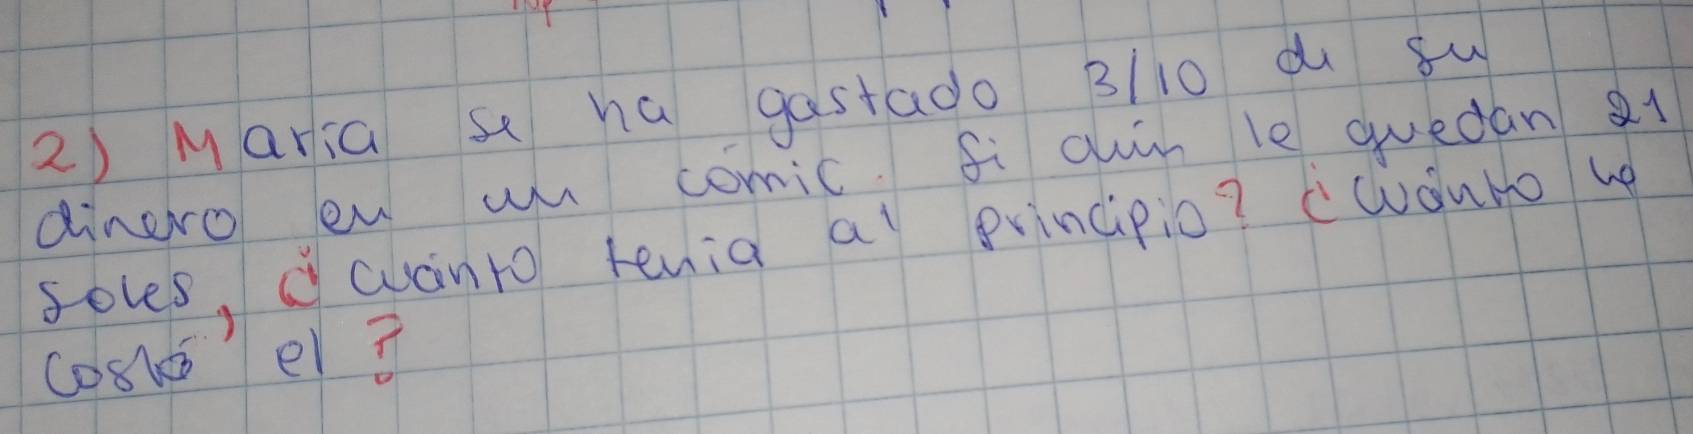 2) Maria se ha gastado 3/10 de su
dinero en un cómic. Si aún le quedan 21
soles, ¿cuánto tenia al principio? ¿Cuánto le
costó el ?